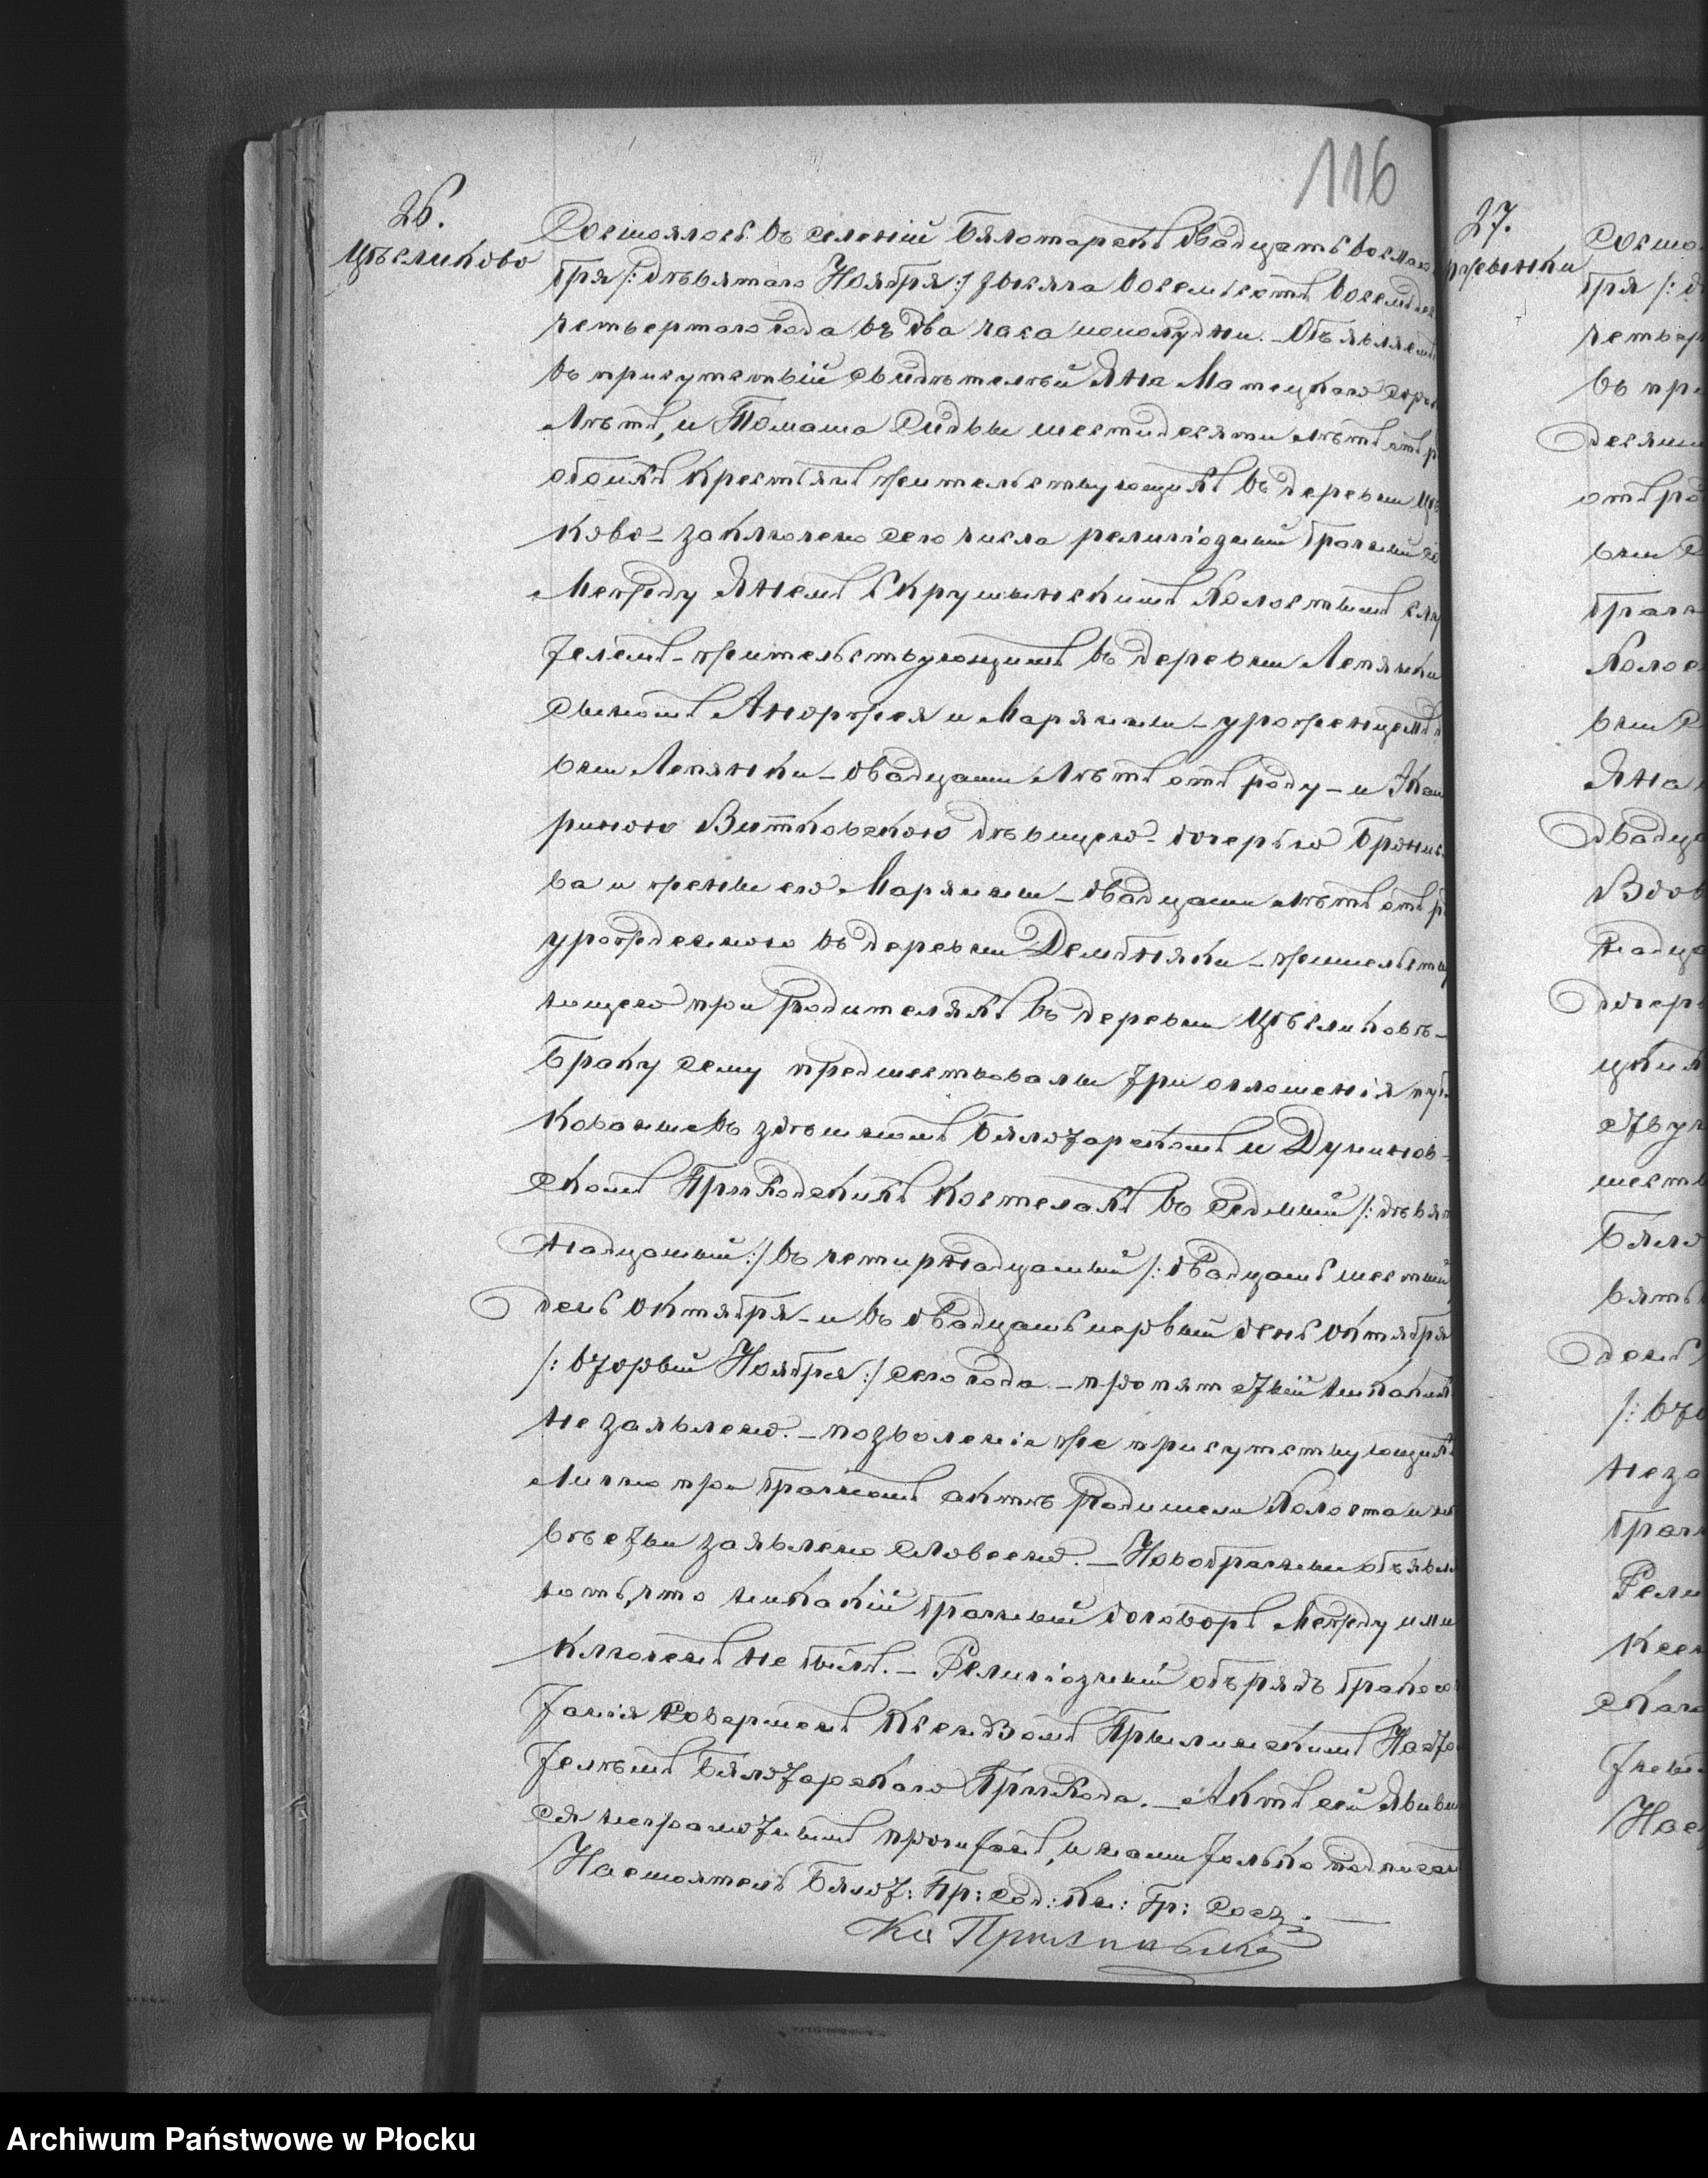 116
26.
Цѣсликово
Состоялось въ селеніи Бялотарскъ двадцать восьмаго
бря /: девятаго Ноября :/ тысяча восемьсотъ восемьдес
четвертаго года въ два часа пополудни. – Объявляемъ
въ присутствіи свидѣтелей Яна Матецкаго сорок
лѣтъ, и Томаша Сидвы шестидесяти лѣтъ отъ р
обоихъ крестьянъ жительствующихъ въ деревни Цѣ
ково – заключено сего числа религіозный брачный со
между Яномъ Скрушынскимъ холостымъ слу
телемъ – жительствующимъ въ деревни Лепянки
сыномъ Андржея и Маріянны – уроженцемъ
вни Лепянки – двадцати лѣтъ отъ роду – и Кат
риною Витковскою дѣвицею – дочерью Бронис
ва и жены его Маріянны – двадцати лѣтъ отъ р
урожденною въ деревни Дембняки – жительству
ющею при родителяхъ въ деревни Цѣсликовѣ –
Браку сему предшествовали три оглашенія пуб
кованые въ здѣшномъ Бялотарскомъ и Дуниновскомъ
скомъ Приходскихъ Костелахъ въ седмый /: девят
надцатый :/ въ четырнадцатый /: двадцать шестый
день октября – и въ двадцать первый день октября
/: вторый Ноября :/ сего года. – препятствій никакихъ
не заявлено. – позволеніе же присутствующихъ
лично при брачномъ актѣ Родители холоста и не
вѣсты заявлено словесно. – Новобрачные объявля
ютъ, что никакій брачный договоръ между ими
ключенъ не былъ. – Религіозный обърядъ бракосо
танія совершенъ Ксендзомъ Настоя
телемъ Бялотарскаго Прихода. – Актъ сей явивш
ся неграмотнымъ прочитанъ, и нами только подписанъ
Настоятель Бялот: Пр: Сод: Кн: Гр: Сост.
27.
Состо
бря /: д
четвер
въ при
десяти
отъ ро
вни
брачн
холос
вни
Яна
двадца
Вдов
надца
дочерь
цких
ству
шесть
Бяло
вять
день
/: вто
не за
брач
Рели
Ксен
скаго
Нас
Archiwum Państwowe w Płocku